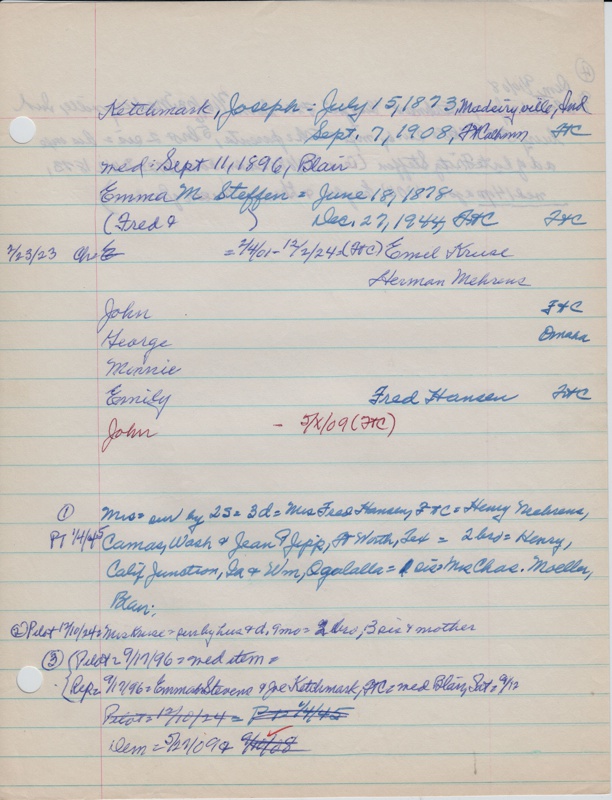 Ketchmark, Joseph = July 15, 1873, Medaryville, Ind
Sept. 7, 1908, Ft Calhoun FtC
med: Sept 11, 1896, Blair
Emma M Steffen = June 18, 1878
(Fred & ) Dec. 27, 1944, FtC FtC
2/23/23 = 2/4/01 - 12/2/24 (FtC) Emil Kruse
Herman Mehrens
John FtC
George Omaha
Minnie
Emily Fred Hansen FtC
John - 5/X/09 (FtC)
① Mrs = sur by 2S = 3d = Mrs Fred Hansen, FtC = Henry Mehrens,
PT 1/4/45 Camas, Wash & Jean Ft Worth, Tex = 2 bro = Henry,
Calif Junction, Ia & Wm, Ogalalla = 1 sis Mrs Chas. Moeller,
Blair:
② Pilot 12/10/24 = Mrs Kruse = sur by hus & d, 9mo = 2 bro, 3 sis & mother
③ (Pilot = 9/17/96 = med item =
(Rep = 9/17/96 = Emma Stevens & Joe Ketchmark, FtC = med Blair, Sat = 9/12
Pilot = 12/10/24 = PT = 1/4/45
Dem = 5/27/09 &